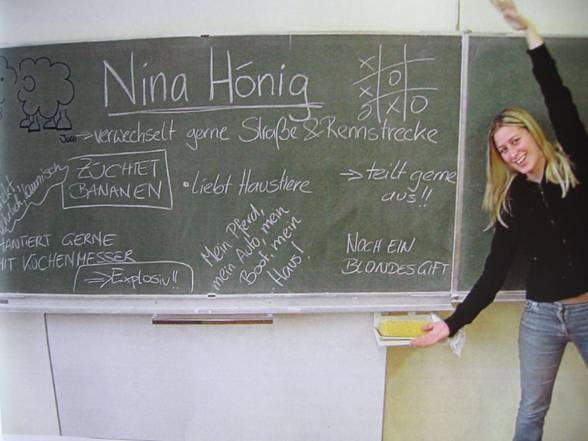 Nina Hónig
X
O
X
O X O
=> verwechselt gerne Straße & Rennstrecke
ZÜCHTET
BANANEN
• liebt Haustiere
=> teilt gerne
aus!!
HANTIERT GERNE
MIT KÜCHENMESSER
=> Explosiv!!
Mein Pferd,
mein Auto, mein
Boot, mein
Haus!
NOCH EIN
BLONDES GIFT